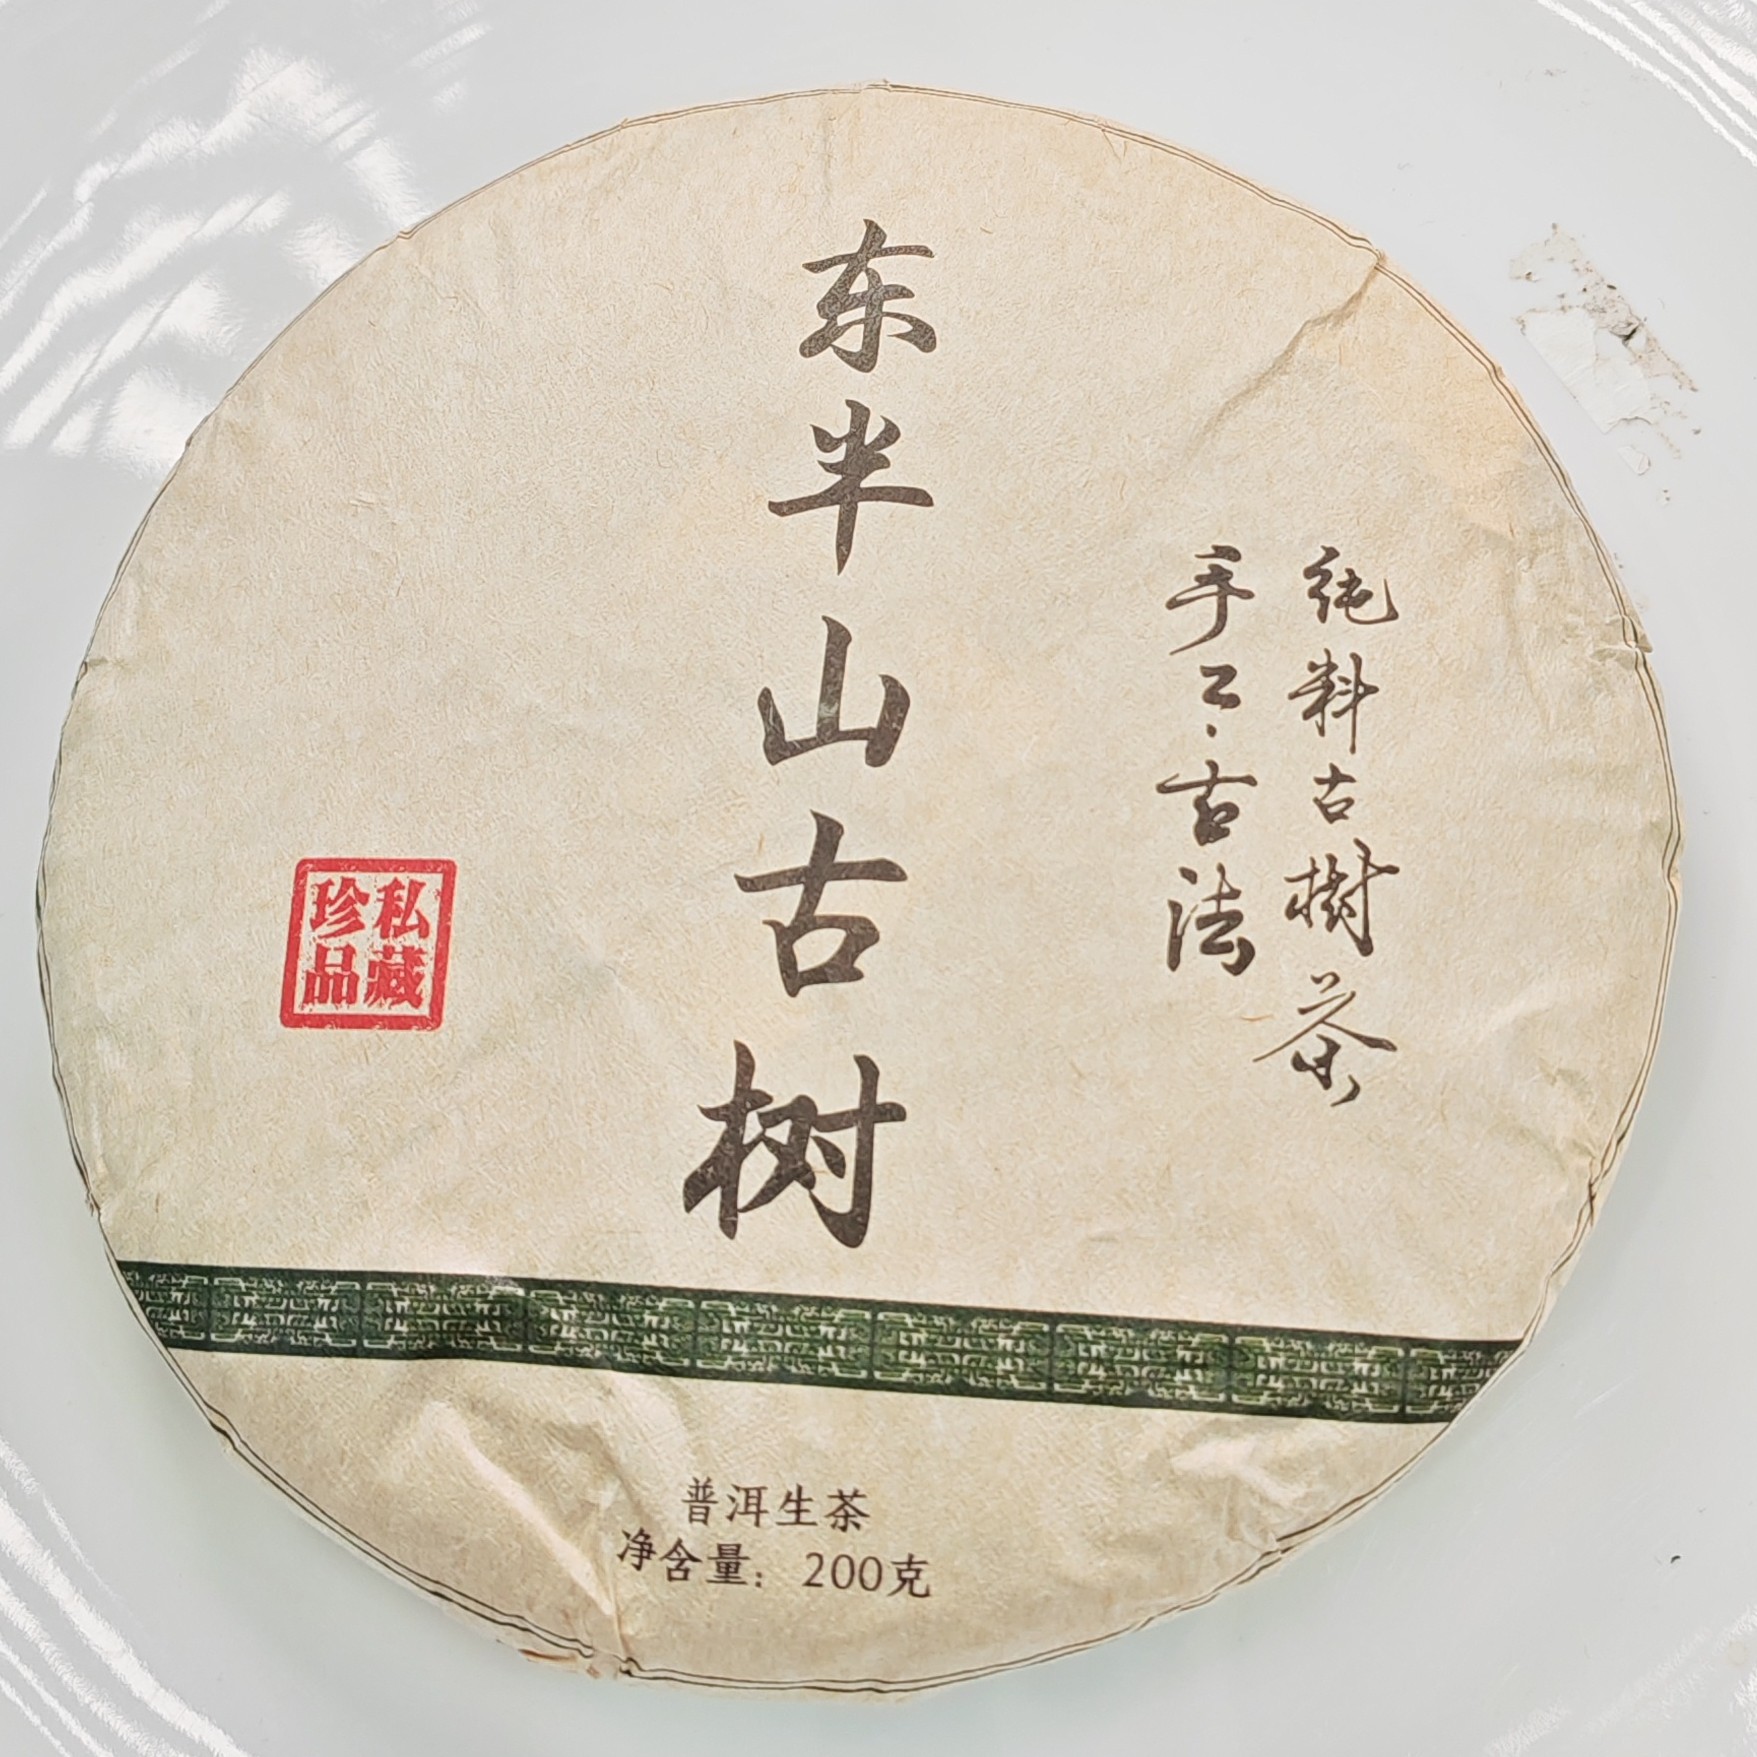 纯料古樹茶
手工·古法
东半山古树
私藏
珍品
普洱生茶
净含量：200克